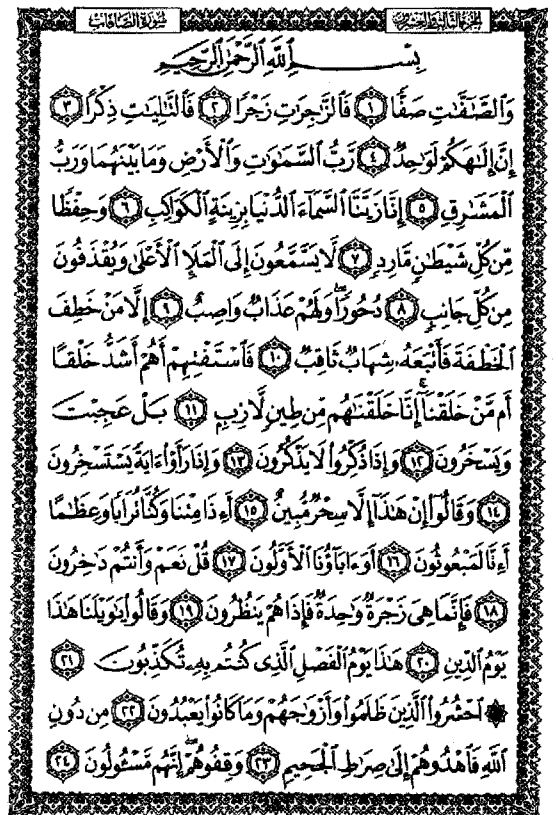 الجزء الثالث والعشرون سورة الصافات
بِسْمِ اللَّهِ الرَّحْمَٰنِ الرَّحِيمِ
وَالصَّافَّاتِ صَفًّا ١ فَالزَّاجِرَاتِ زَجْرًا ٢ فَالتَّالِيَاتِ ذِكْرًا ٣
إِنَّ إِلَٰهَكُمْ لَوَاحِدٌ ٤ رَّبُّ السَّمَاوَاتِ وَالْأَرْضِ وَمَا بَيْنَهُمَا وَرَبُّ
الْمَشَارِقِ ٥ إِنَّا زَيَّنَّا السَّمَاءَ الدُّنْيَا بِزِينَةٍ الْكَوَاكِبِ ٦ وَحِفْظًا
مِّن كُلِّ شَيْطَانٍ مَّارِدٍ ٧ لَّا يَسَّمَّعُونَ إِلَى الْمَلَإِ الْأَعْلَىٰ وَيُقْذَفُونَ
مِن كُلِّ جَانِبٍ ٨ دُحُورًا ۖ وَلَهُمْ عَذَابٌ وَاصِبٌ ٩ إِلَّا مَنْ خَطِفَ
الْخَطْفَةَ فَأَتْبَعَهُ شِهَابٌ ثَاقِبٌ ١٠ فَاسْتَفْتِهِمْ أَهُمْ أَشَدُّ خَلْقًا
أَم مَّنْ خَلَقْنَا ۚ إِنَّا خَلَقْنَاهُم مِّن طِينٍ لَّازِبٍ ١١ بَلْ عَجِبْتَ
وَيَسْخَرُونَ ١٢ وَإِذَا ذُكِّرُوا لَا يَذْكُرُونَ ١٣ وَإِذَا رَأَوْا آيَةً يَسْتَسْخِرُونَ
١٤ وَقَالُوا إِنْ هَٰذَا إِلَّا سِحْرٌ مُّبِينٌ ١٥ أَءِذَا مِتْنَا وَكُنَّا تُرَابًا وَعِظَامًا
أَءِنَّا لَمَبْعُوثُونَ ١٦ أَوَءَابَاؤُنَا الْأَوَّلُونَ ١٧ قُلْ نَعَمْ وَأَنتُمْ دَاخِرُونَ
١٨ فَإِنَّمَا هِيَ زَجْرَةٌ وَاحِدَةٌ فَإِذَا هُمْ يَنظُرُونَ ١٩ وَقَالُوا يَا وَيْلَنَا هَٰذَا
يَوْمُ الدِّينِ ٢٠ هَٰذَا يَوْمُ الْفَصْلِ الَّذِي كُنتُم بِهِ تُكَذِّبُونَ ٢١
۞ احْشُرُوا الَّذِينَ ظَلَمُوا وَأَزْوَاجَهُمْ وَمَا كَانُوا يَعْبُدُونَ ٢٢ مِن دُونِ
اللَّهِ فَاهْدُوهُمْ إِلَىٰ صِرَاطِ الْجَحِيمِ ٢٣ وَقِفُوهُمْ ۖ إِنَّهُم مَّسْئُولُونَ ٢٤